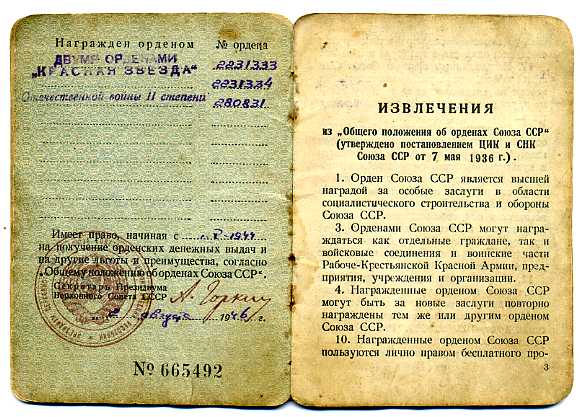 Награжден орденом № ордена
ДВУМЯ ОРДЕНАМИ
„КРАСНАЯ ЗВЕЗДА“ 2231333
2231334
Отечественной войны II степени 280831
Имеет право, начиная с
на получение орденских денежных выдач и
на другие льготы и преимущества, согласно
„Общему положению об орденах Союза ССР“.
Секретарь Президиума
Верховного Совета СССР А. Горкин
августа 1946 г.
№ 665492
ИЗВЛЕЧЕНИЯ
из „Общего положения об орденах Союза ССР“
(утверждено постановлением ЦИК и СНК
Союза ССР от 7 мая 1936 г.).
1. Орден Союза ССР является высшей
наградой за особые заслуги в области
социалистического строительства и обороны
Союза ССР.
3. Орденами Союза ССР могут награ-
ждаться как отдельные граждане, так и
войсковые соединения и воинские части
Рабоче-Крестьянской Красной Армии, пред-
приятия, учреждения и организации.
4. Награжденные орденом Союза ССР
могут быть за новые заслуги повторно
награждены тем же или другим орденом
Союза ССР.
10. Награжденные орденом Союза ССР
пользуются лично правом бесплатного про-
3